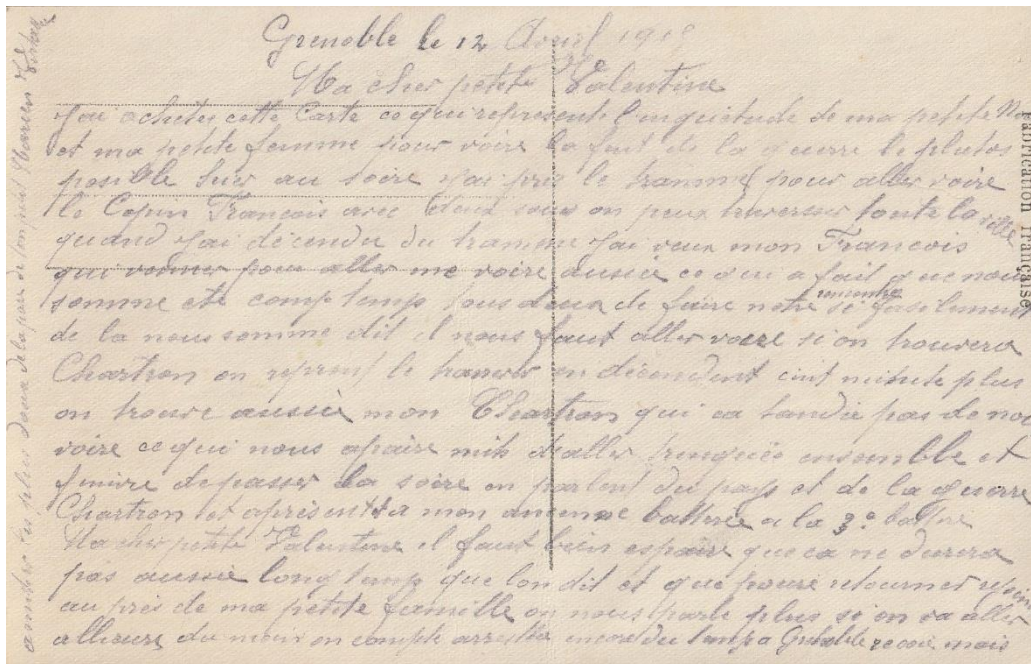 Grenoble le 12 Avril 191
Ma cher petite Valentine
J'ai acheter cette Carte ce qui represente l'inquietude de ma petite
et ma petite femme pour voire la fint de la guerre le plutos
posible hier au soire j'ai pris le tramme pour aller voire
le Copin Francois avec deux sous on peux traverser toute la ville
quand j'ai décendu du tramme j'ai veux mon Francois
qui venner pour aller me voire aussie ce qui a fait que nous
somme eté temp tous deux de faire notre rencontre si fasilement
de la nous somme dit il nous faut aller voire si on trouvera
Chartron on reprend le tramw en décendent cint minute plus
on trouve aussie mon Chartron qui pas de nou
voire ce qui nous mih d'aller trinquer ensemble et
finire de passer la soire en parlent du pays et de la guerre
Chartron et apresent a mon ancienne batterie a la 3e battrie
Ma cher petite Valentine il faut bien espaire que ca ne durera
pas aussie longtemp que lon dit et que pouré retourner
au pres de ma petite famille on nous parle plus si on va aller
allieure du moin on compte encore du temp a Grenoble recoie mais
amities les plus doux de la par de ton petit Marien
Fabrication Française